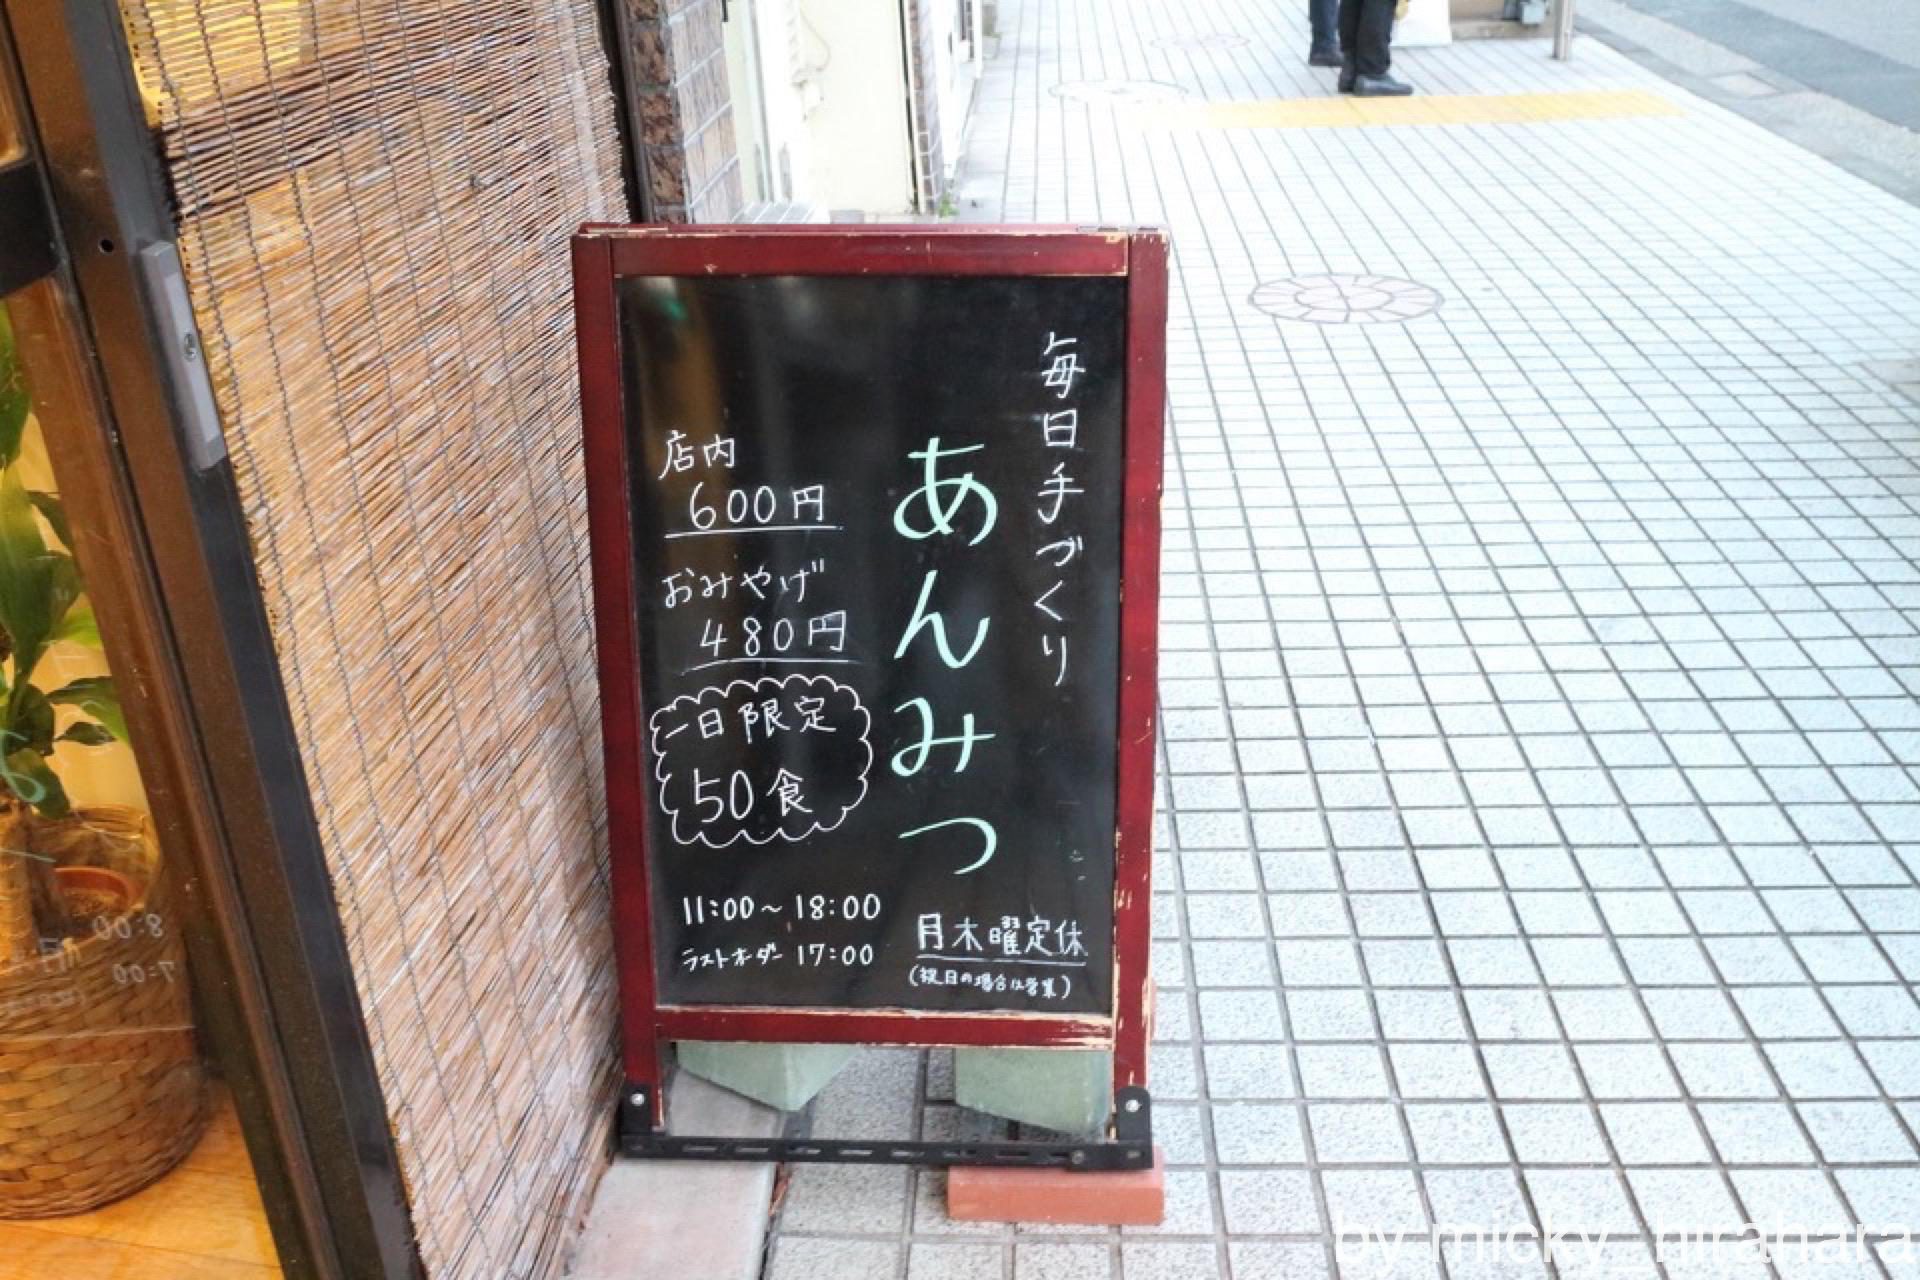 毎日手づくり
あんみつ
店内
600円
おみやげ
480円
一日限定
50食
11:00~18:00
ラストオーダー 17:00
月木曜定休
(祝日の場合は営業)
8:00
7:00
by micky_hirahara